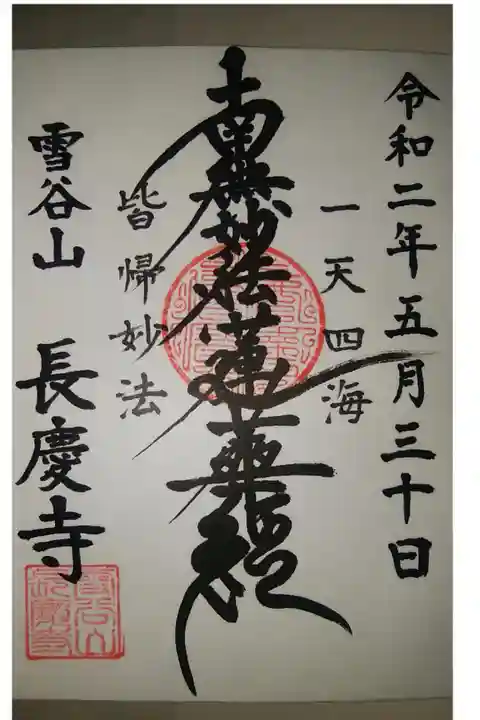 令和二年五月三十日
一天四海
南無妙法蓮華経
皆帰妙法
雪谷山 長慶寺